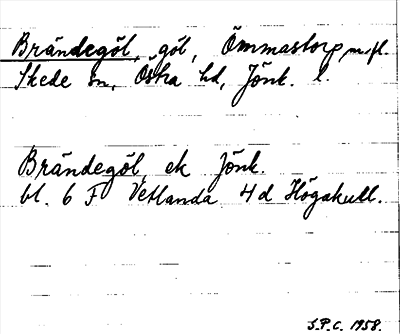 Brändegöl, göl, Ömmastorp m.fl.
Skede sn, Östra hd, Jönk. l.
Brändegöl, ek Jönk.
bl. 6 F Vetlanda 4 d Högakull.
S.P.C. 1958.